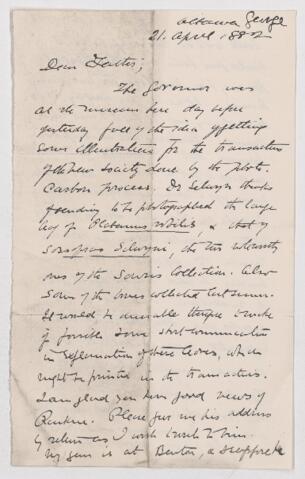 Ottawa George
21. April 1882
Dear Father;
The Governor was
at the museum here day before
yesterday full of the idea of getting
some illustrations for the transactions
of the new society done by the photo.
Carbon process. Dr Selwyn thinks
of sending to be photographed the large
leg of Platanus nobilis, & that of
Sassafras Selwyni, the two
ones of the Souris Collection. Also
some of the ones collected last summer.
It would be desirable to
if possible some short communication
in explanation of these leaves, which
might be printed in the transactions.
I am glad you have good news of
Rankine. Please give me his address
by return as I wish to write to him.
My gun is at Benton, a